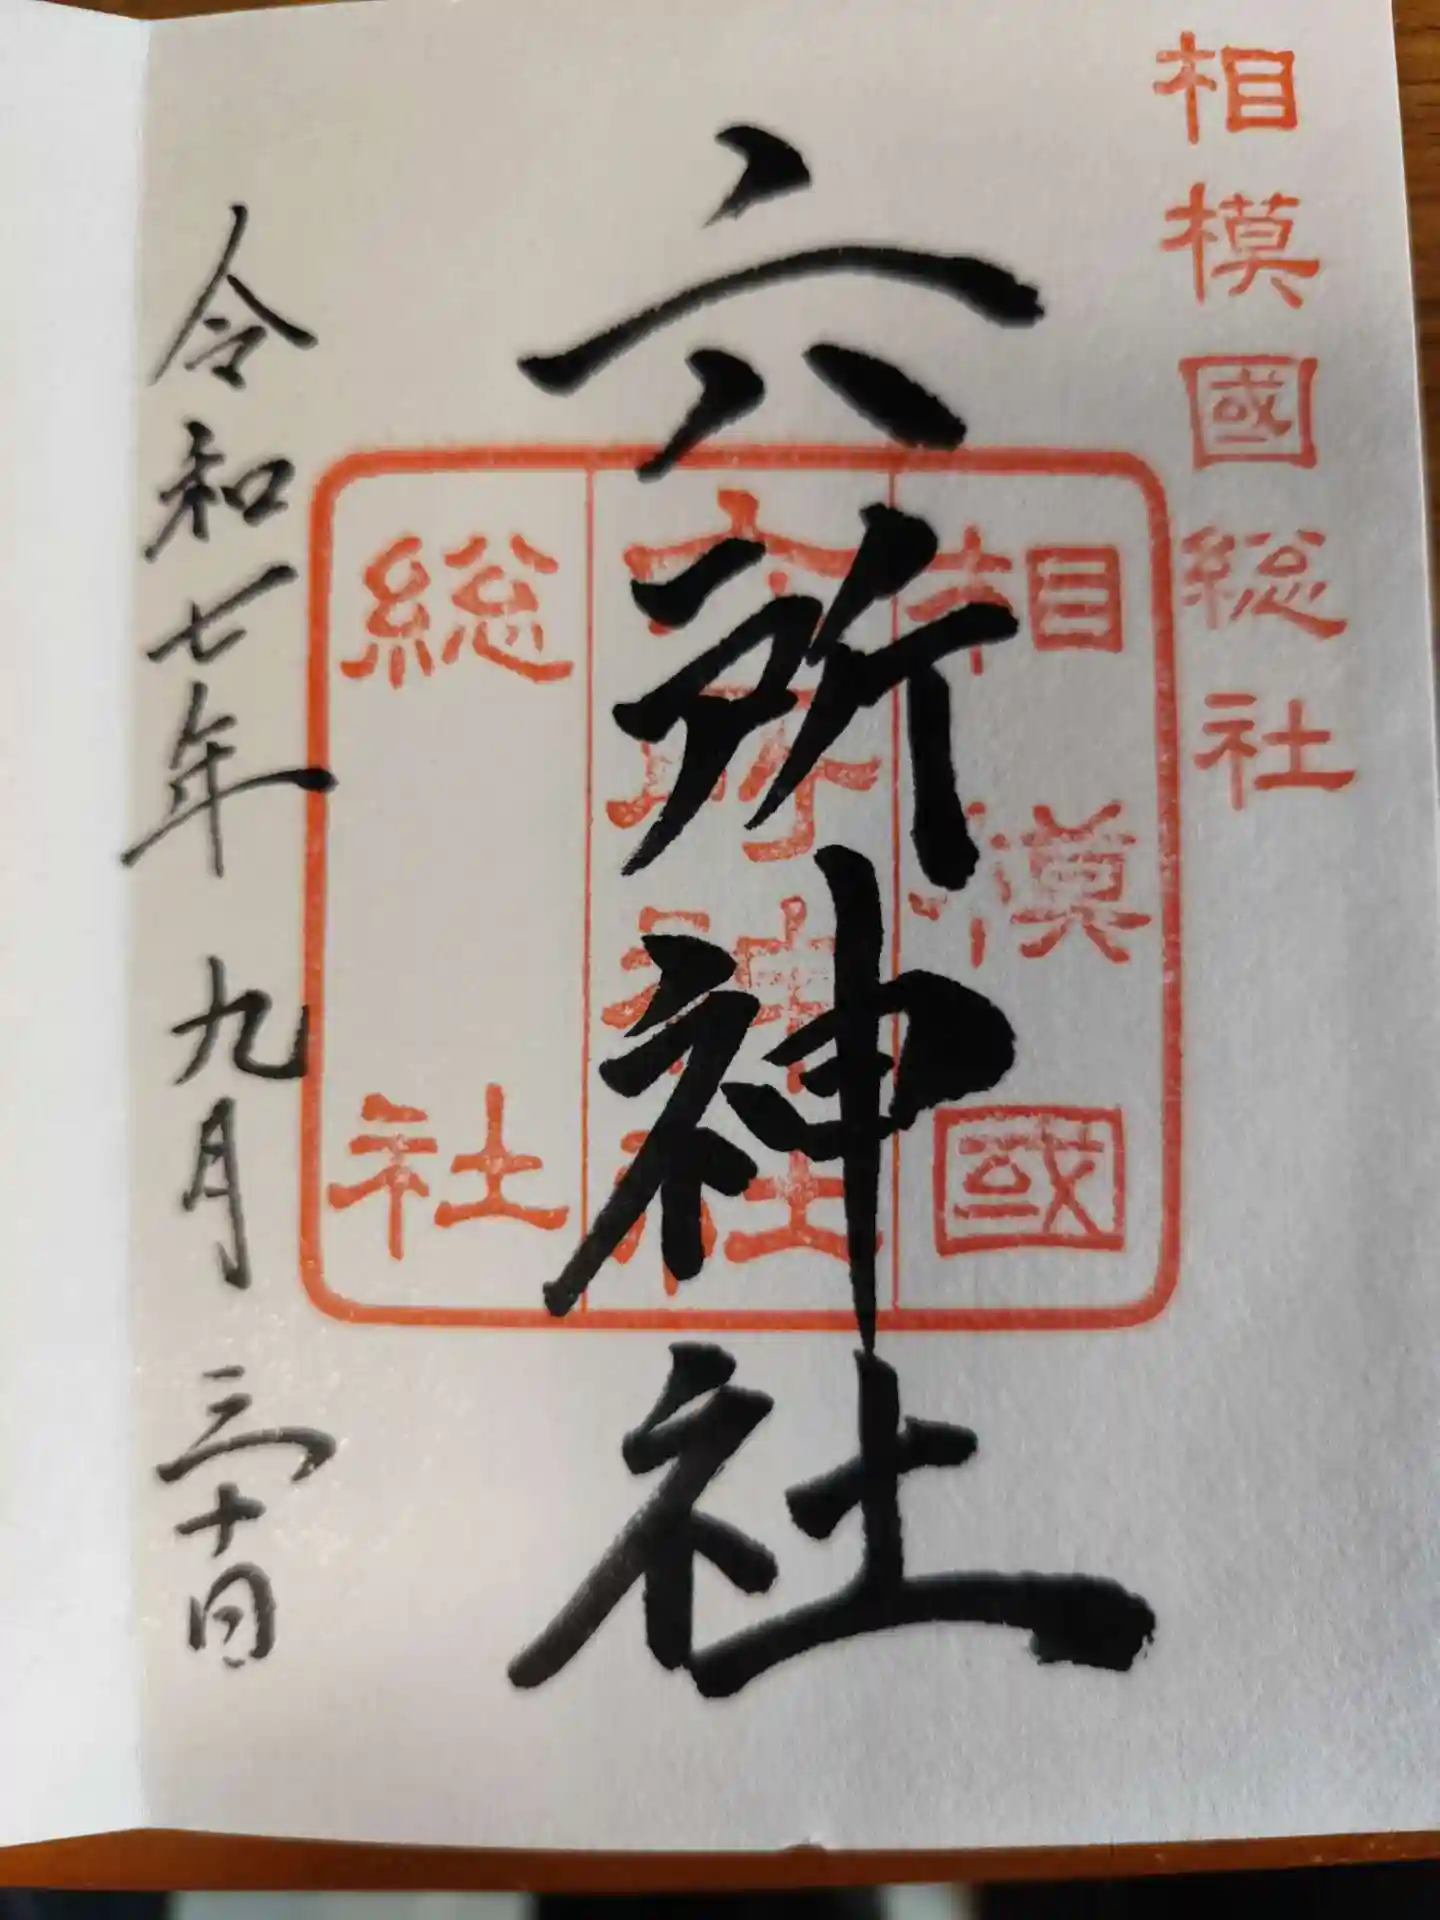 相模國総社
六所神社
相模國
六所神社
総社
令和七年 九月 三十日